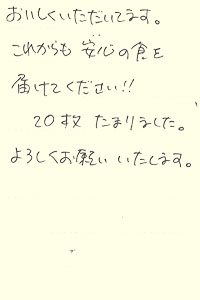 おいしくいただいてます。
これからも 安心の食を
届けてください!!
20枚 たまりました。
よろしくお願い いたします。